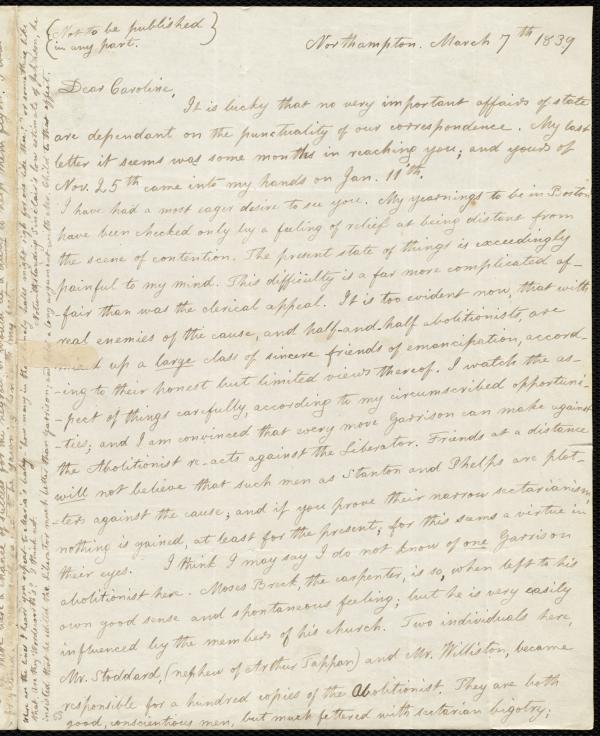 (Not to be published
in any part.)
Northampton. March 7th 1839
Dear Caroline,
It is lucky that no very important affairs of state
are dependant on the punctuality of our correspondence. My last
letter it seems was some months in reaching you; and yours of
Nov. 25th came into my hands on Jan. 11th.
I have had a most eager desire to see you. My yearnings to be in Boston
have been checked only by a feeling of relief at being distant from
the scene of contention. The present state of things is exceedingly
painful to my mind. This difficulty is a far more complicated af-
-fair than was the clerical appeal. It is too evident now, that with
real enemies of the cause, and half-and-half abolitionists, are
up a large class of sincere friends of emancipation, accord-
-ing to their honest but limited views thereof. I watch the as-
-pect of things carefully, according to my circumscribed opportuni-
-ties; and I am convinced that every move Garrison can make against
the Abolitionist re-acts against the Liberator. Friends at a distance
will not believe that such men as Stanton and Phelps are plot-
-ters against the cause; and if you prove their narrow sectarianism,
nothing is gained, at least for the present; for this seems a virtue in
their eyes. I think I may say I do not know of one Garrison
abolitionist here. Moses Breck, the carpenter, is so, when left to his
own good sense and spontaneous feeling; but he is very easily
influenced by the members of his church. Two individuals here,
Mr. Stoddard, (nephew of Arthur Tappan) and Mr. Williston, became
responsible for a hundred copies of the Abolitionist. They are both
good, conscientious men, but much fettered with sectarian bigotry;